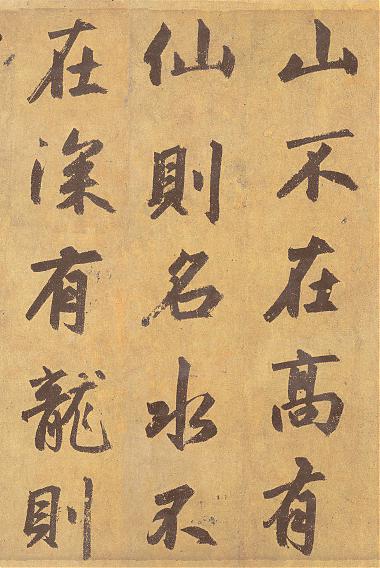 山不在高有
仙則名水不
在深有龍則